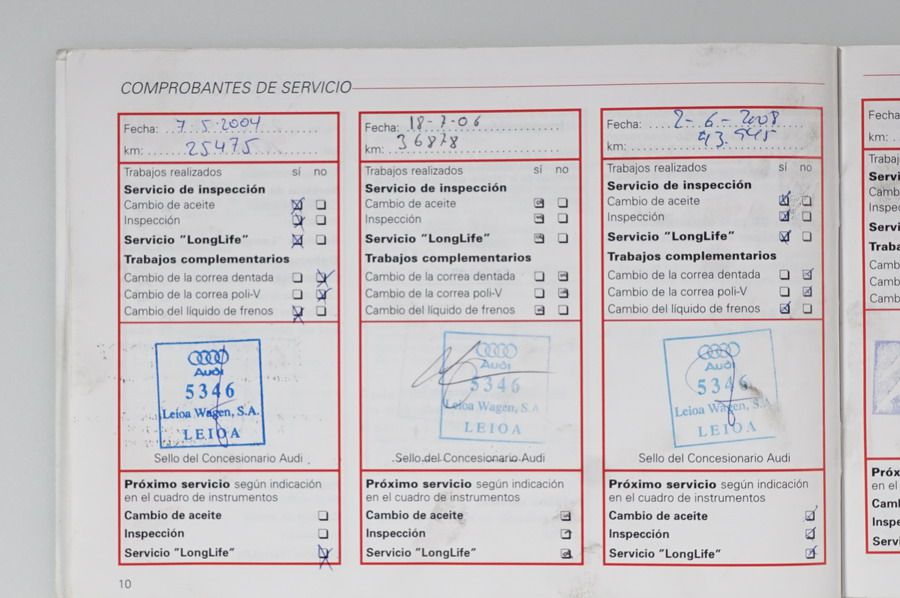 COMPROBANTES DE SERVICIO
Fecha: 7.5.2004
km: 25475
Trabajos realizados sí no
Servicio de inspección
Cambio de aceite
Inspección
Servicio "LongLife"
Trabajos complementarios
Cambio de la correa dentada
Cambio de la correa poli-V
Cambio del líquido de frenos
Audi
5346
Leioa Wagen, S.A.
LEIOA
Sello del Concesionario Audi
Próximo servicio según indicación
en el cuadro de instrumentos
Cambio de aceite
Inspección
Servicio "LongLife"
Fecha: 18-7-06
km: 36878
Trabajos realizados sí no
Servicio de inspección
Cambio de aceite
Inspección
Servicio "LongLife"
Trabajos complementarios
Cambio de la correa dentada
Cambio de la correa poli-V
Cambio del líquido de frenos
Audi
5346
Leioa Wagen, S.A.
LEIOA
Sello del Concesionario Audi
Próximo servicio según indicación
en el cuadro de instrumentos
Cambio de aceite
Inspección
Servicio "LongLife"
Fecha: 2-6-2008
km:
Trabajos realizados sí no
Servicio de inspección
Cambio de aceite
Inspección
Servicio "LongLife"
Trabajos complementarios
Cambio de la correa dentada
Cambio de la correa poli-V
Cambio del líquido de frenos
Audi
5346
Leioa Wagen, S.A.
LEIOA
Sello del Concesionario Audi
Próximo servicio según indicación
en el cuadro de instrumentos
Cambio de aceite
Inspección
Servicio "LongLife"
10
km: